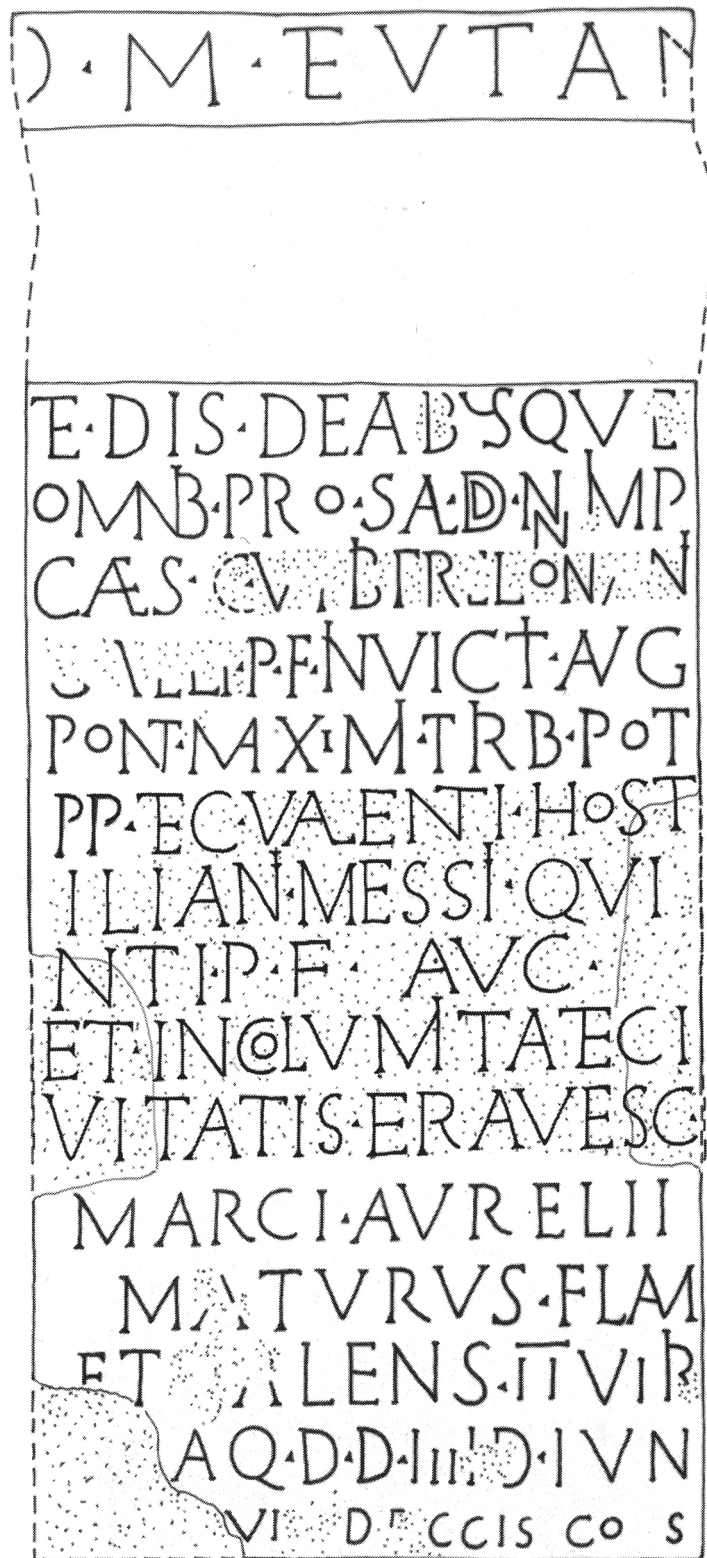 · M · EVTAN
E · DIS · DEABVSQVE
OMNIB · PRO · SA · DD · NN IMP
CAES ·
P · F · INVICT · AVG
PONT · MAXIM · TRIB · POT
PP · ET · C · VALENTI · HOST
ILIANI · MESSI · QVI
NTI · P · F · AVG ·
ET · INCOLVMITATE CI
VITATIS · ERAVESC
MARCI · AVRELII
MATVRVS · FLAM
ET VALENS · II VIR
AQ · D · D · IVN
COS